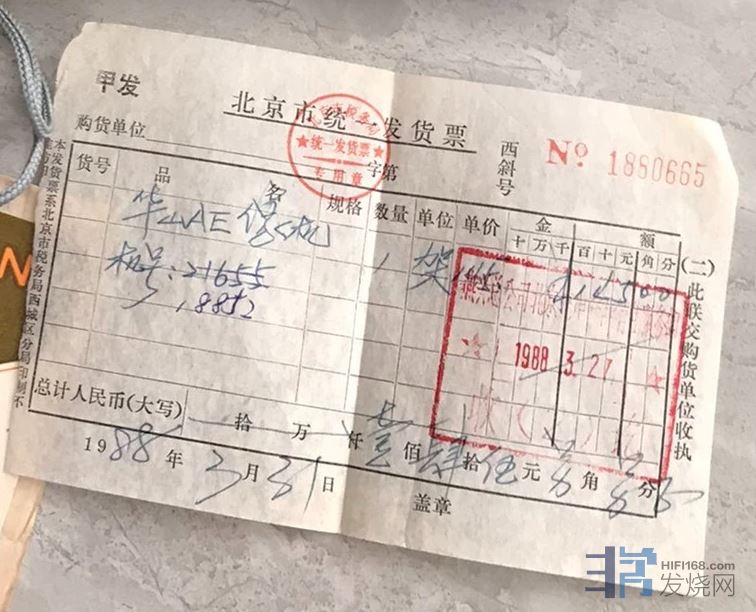 甲发
北京市统一发货票
购货单位
字第
西斜号
№ 1880665
统一发货票
专用章
货号
品名
规格
数量
单位
单价
金额
十万千百十元角分
华山AE
机号:21655
18852
1
架
145.
¥14500
1988.3.27
总计人民币(大写)
拾万仟壹佰肆拾伍元零角零分
1988年3月31日
盖章
(二)此联交购货单位收执
本发货票系北京市税务局西城区分局印制不
N
HIFI168.com
发烧网